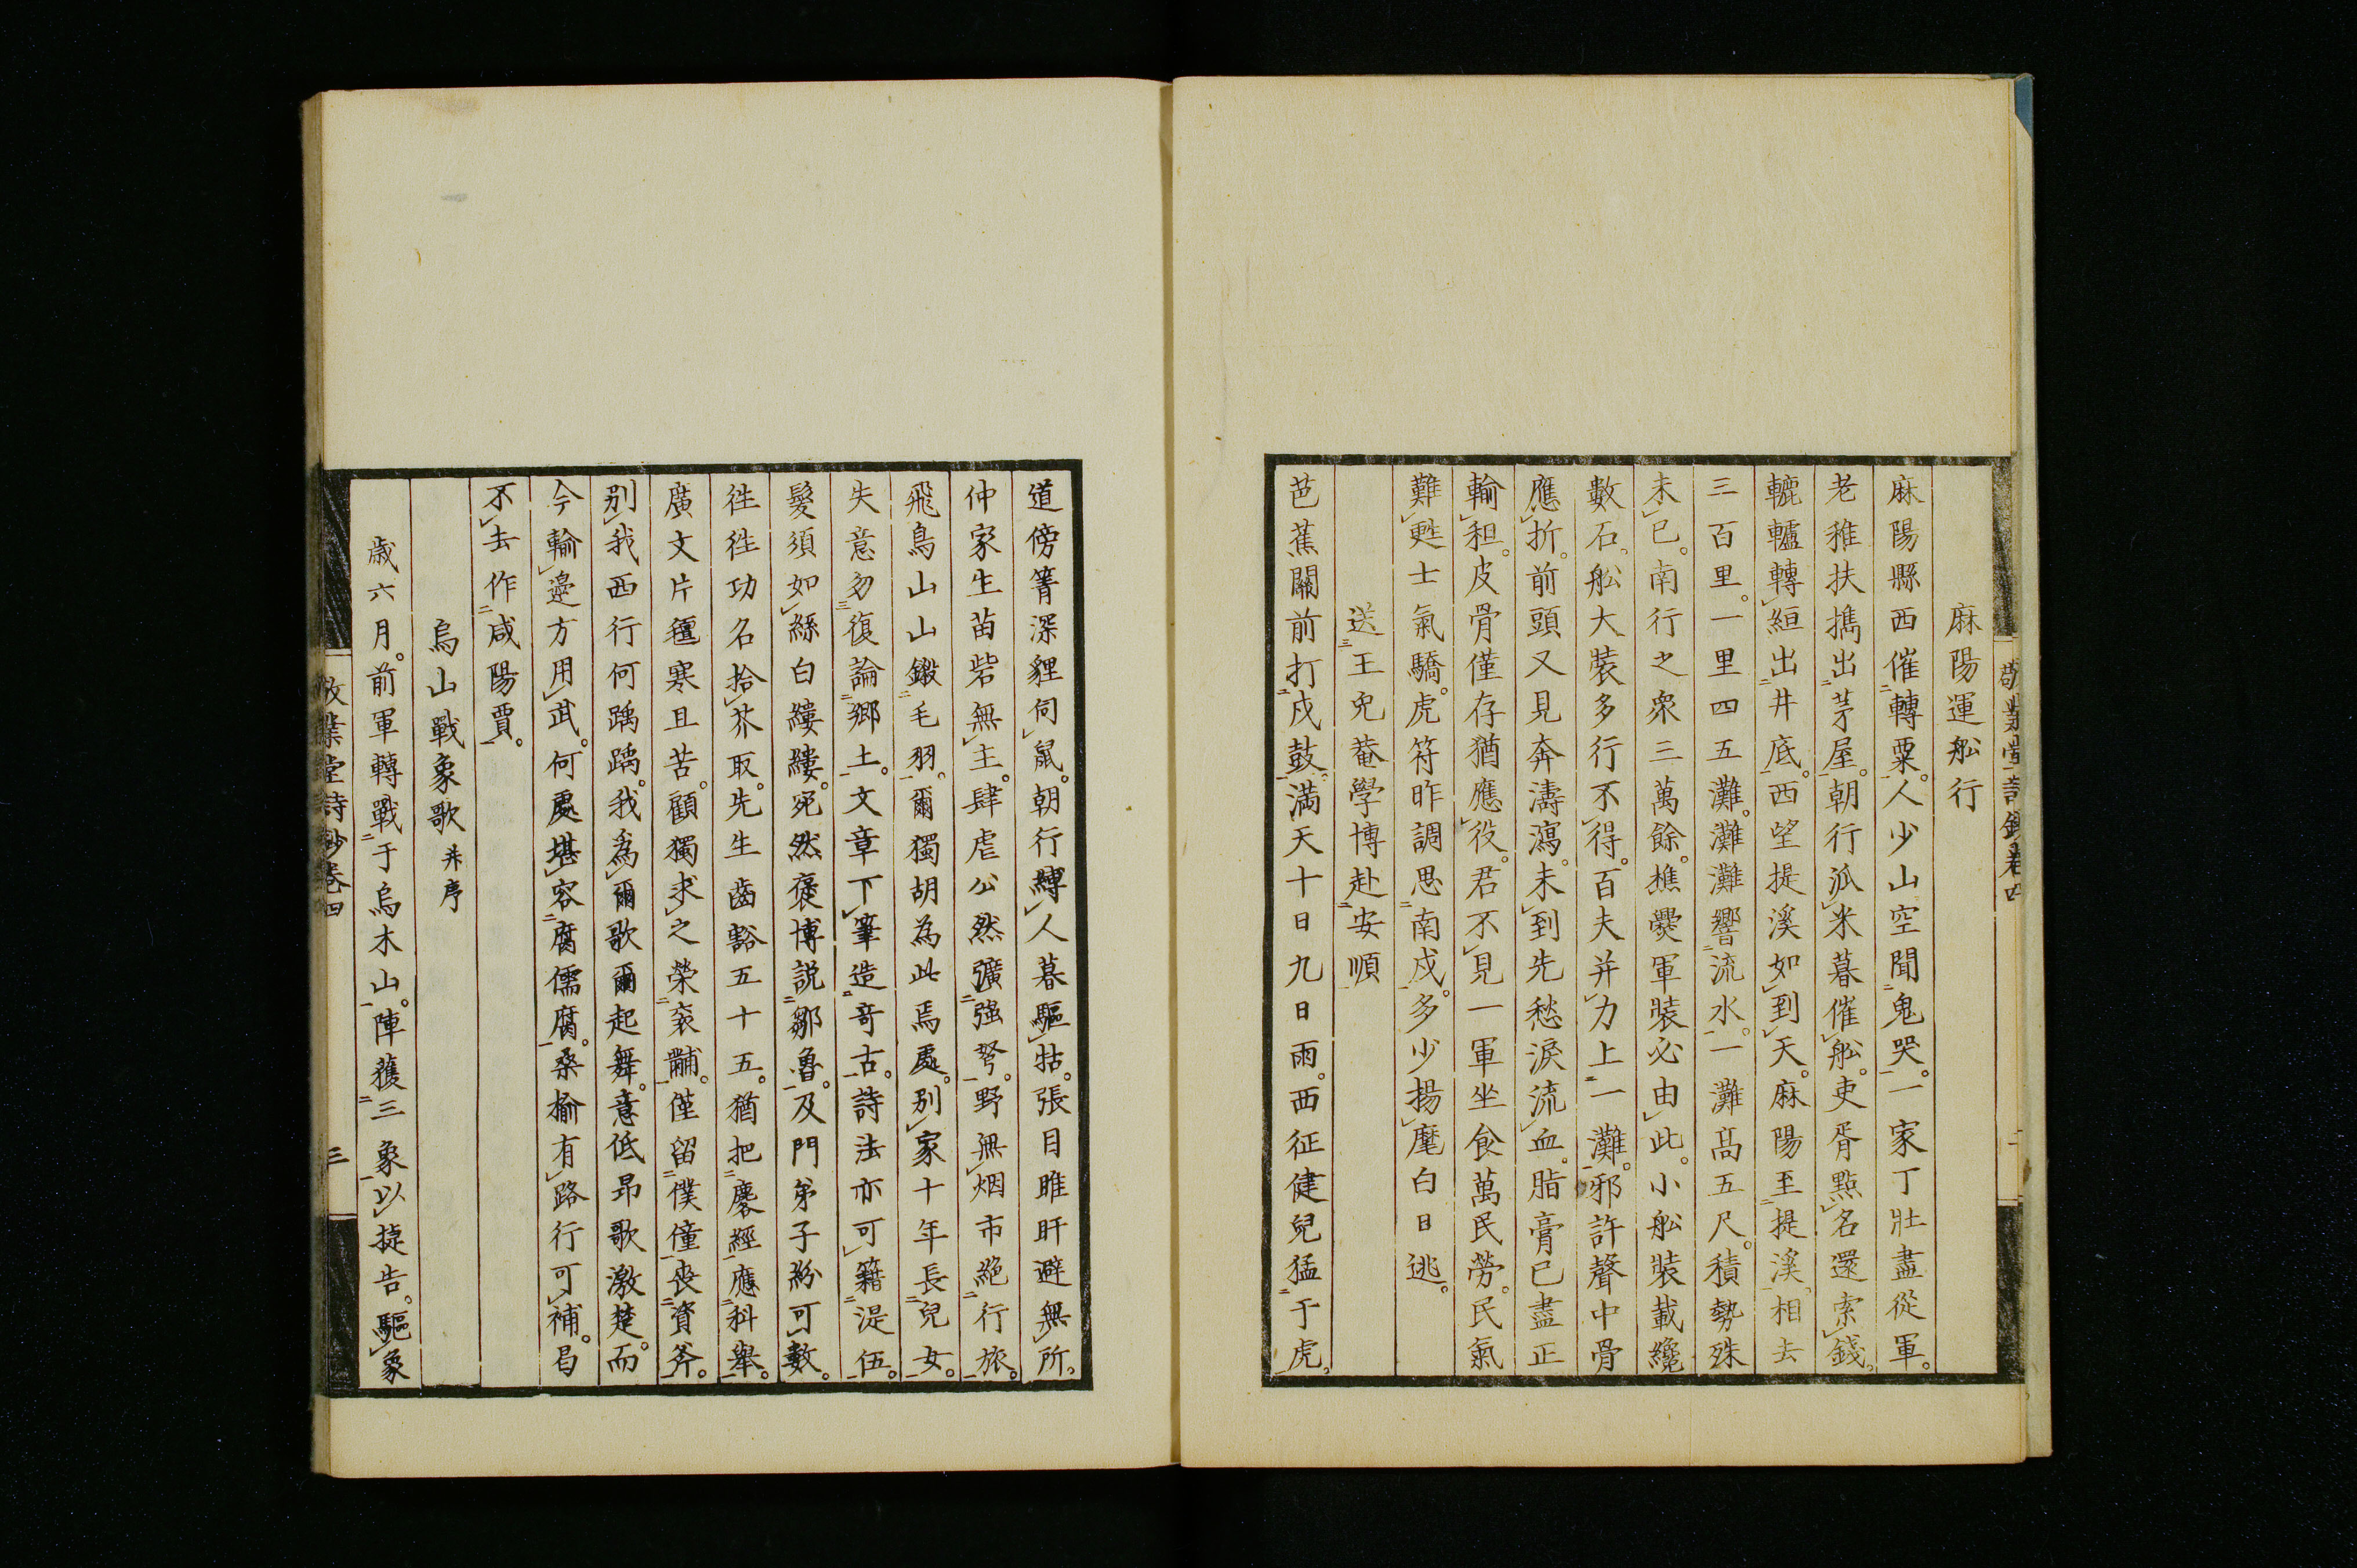 麻陽運船行
麻陽縣西催轉粟。人少山空聞鬼哭。一家丁壯盡從軍。
老稚扶攜出茅屋。朝行派米暮催船。吏胥點名還索錢。
轆轤轉絙出井底。西望提溪如到天。麻陽至提溪。相去
三百里。一里四五灘。灘灘響流水。一灘高五尺。積勢殊
未已。南行之眾三萬餘。樵爨軍裝必由此。小船裝載纔
數石。船大裝多行不得。百夫并力上一灘。邪許聲中骨
應折。前頭又見奔濤瀉。未到先愁淚流血。脂膏已盡正
輸租。皮骨僅存猶應役。君不見一軍坐食萬民勞。民氣
難甦士氣驕。虎符昨調思南戍。多少揚麾白日逃。
送王兒菴學博赴安順
芭蕉關前打戍鼓。滿天十日九日雨。西征健兒猛于虎。
敬業堂詩鈔卷四
二
道傍箐深貍伺鼠。朝行縛人暮驅牯。張目睢盱避無所。
仲家生苗砦無主。肆虐公然彍强弩。野無烟市絕行旅。
飛鳥山山鎩毛羽。爾獨胡為此焉處。別家十年長兒女。
失意勿復論鄉土。文章下筆造奇古。詩法亦可籍湜伍。
鬢須如絲白縷縷。宛然褒博說鄒魯。及門弟子紛可數。
往往功名拾芥取。先生齒豁五十五。猶把麐經應科舉。
廣文片氊寒且苦。顧獨求之榮袞黼。僅留僕僮喪資斧。
別我西行何踽踽。我為爾歌爾起舞。意低昂歌激楚。而
今輸邊方用武。何處堪容腐儒腐。桑榆有路行可補。曷
不去作咸陽賈。
烏山戰象歌 并序
歲六月。前軍轉戰于烏木山。陣獲三象以捷告。驅象
敬業堂詩鈔卷四
三